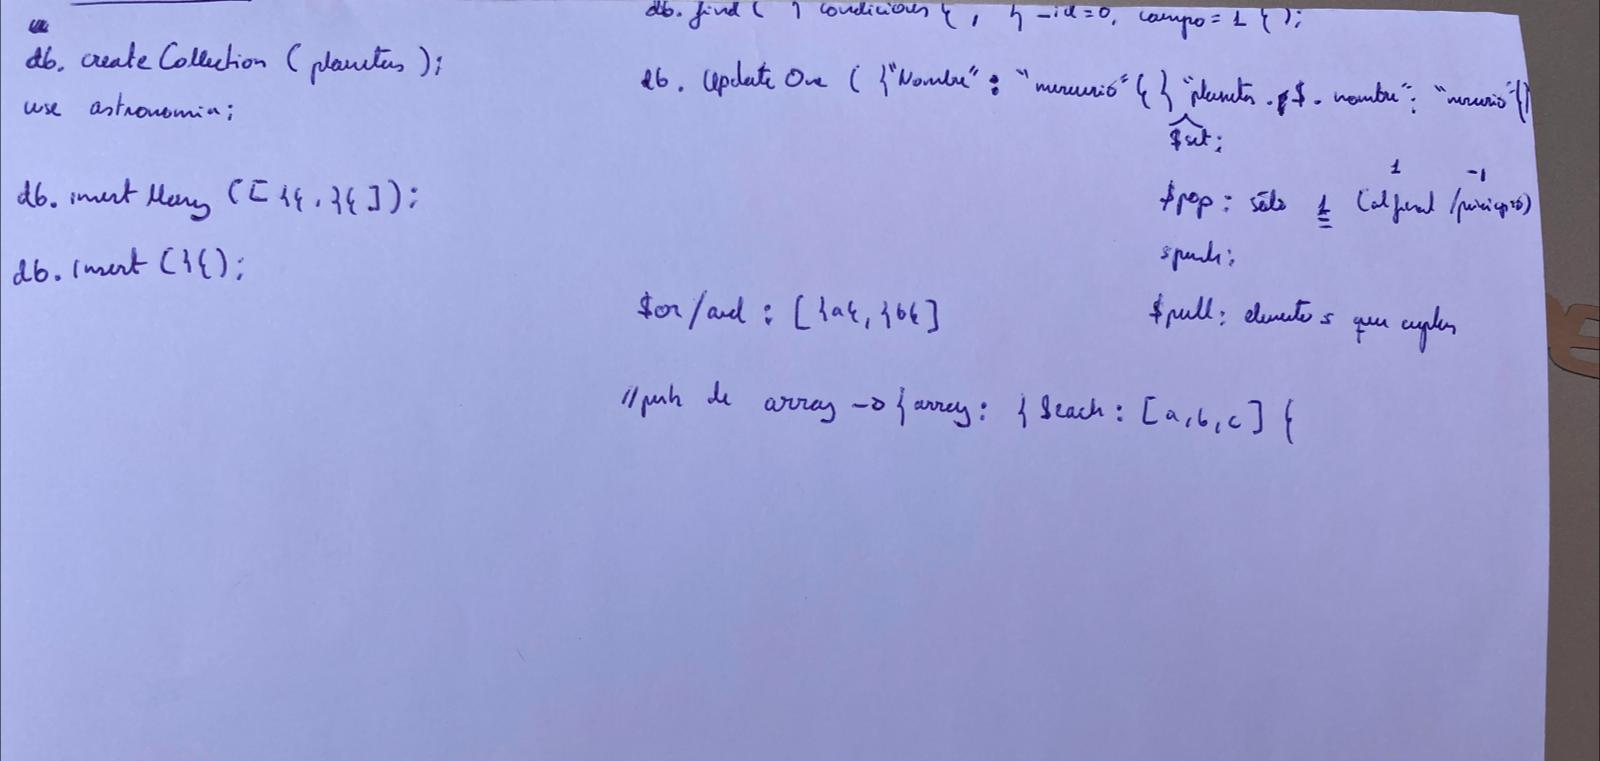 db. create Collection ( planetas );
use astronomia;
db. insert Many ( [ }{ , }{ ] );
db. Insert ( }{ );
db. find ( } condiciones { , } _id=0, campo = 1 { );
db. Update One ( }"Nombre" : "mercurio" { } "planetas . $ . nombre" : "mrurio" { )
$set;
1 -1
$pop : sólo 1 (al final / principio)
$push;
$or/and : [ }a{, }b{ ]
$pull : elementos que cumplen
//push de array -> {array: { $each : [a,b,c] {